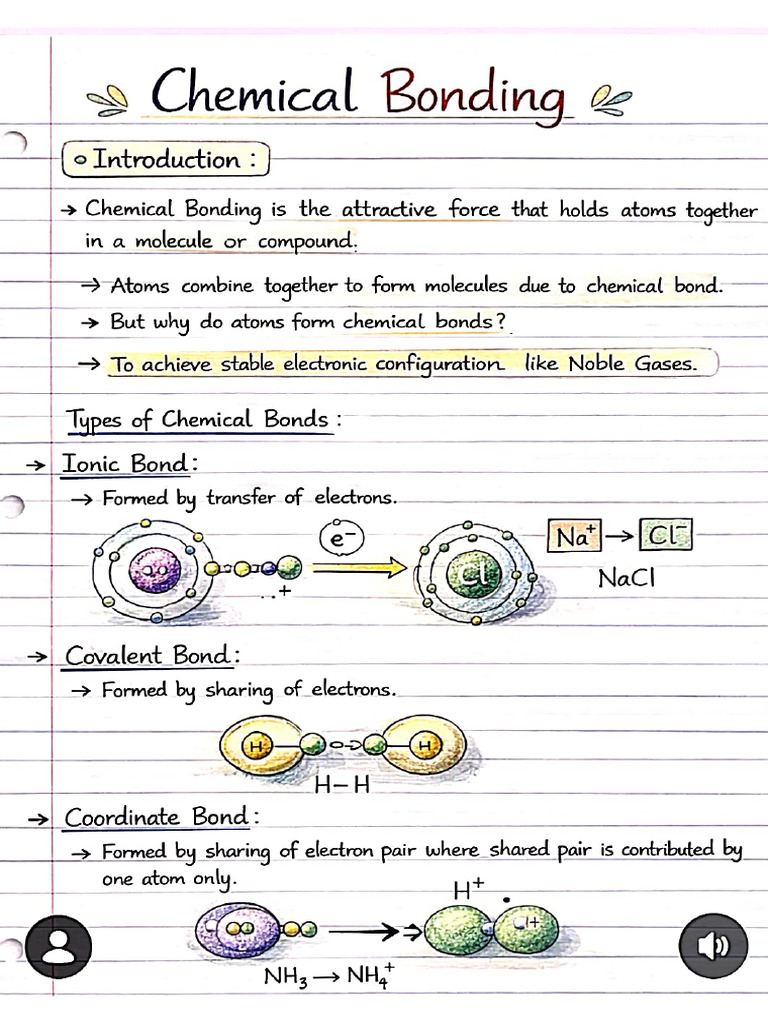 Chemical Bonding
Introduction :
→ Chemical Bonding is the attractive force that holds atoms together
in a molecule or compound.
→ Atoms combine together to form molecules due to chemical bond.
→ But why do atoms form chemical bonds?
→ To achieve stable electronic configuration like Noble Gases.
Types of Chemical Bonds :
→ Ionic Bond :
→ Formed by transfer of electrons.
e⁻
Na⁺ → Cl⁻
Cl
NaCl
+
→ Covalent Bond :
→ Formed by sharing of electrons.
H H
H–H
→ Coordinate Bond :
→ Formed by sharing of electron pair where shared pair is contributed by
one atom only.
H⁺
NH₃ → NH₄⁺